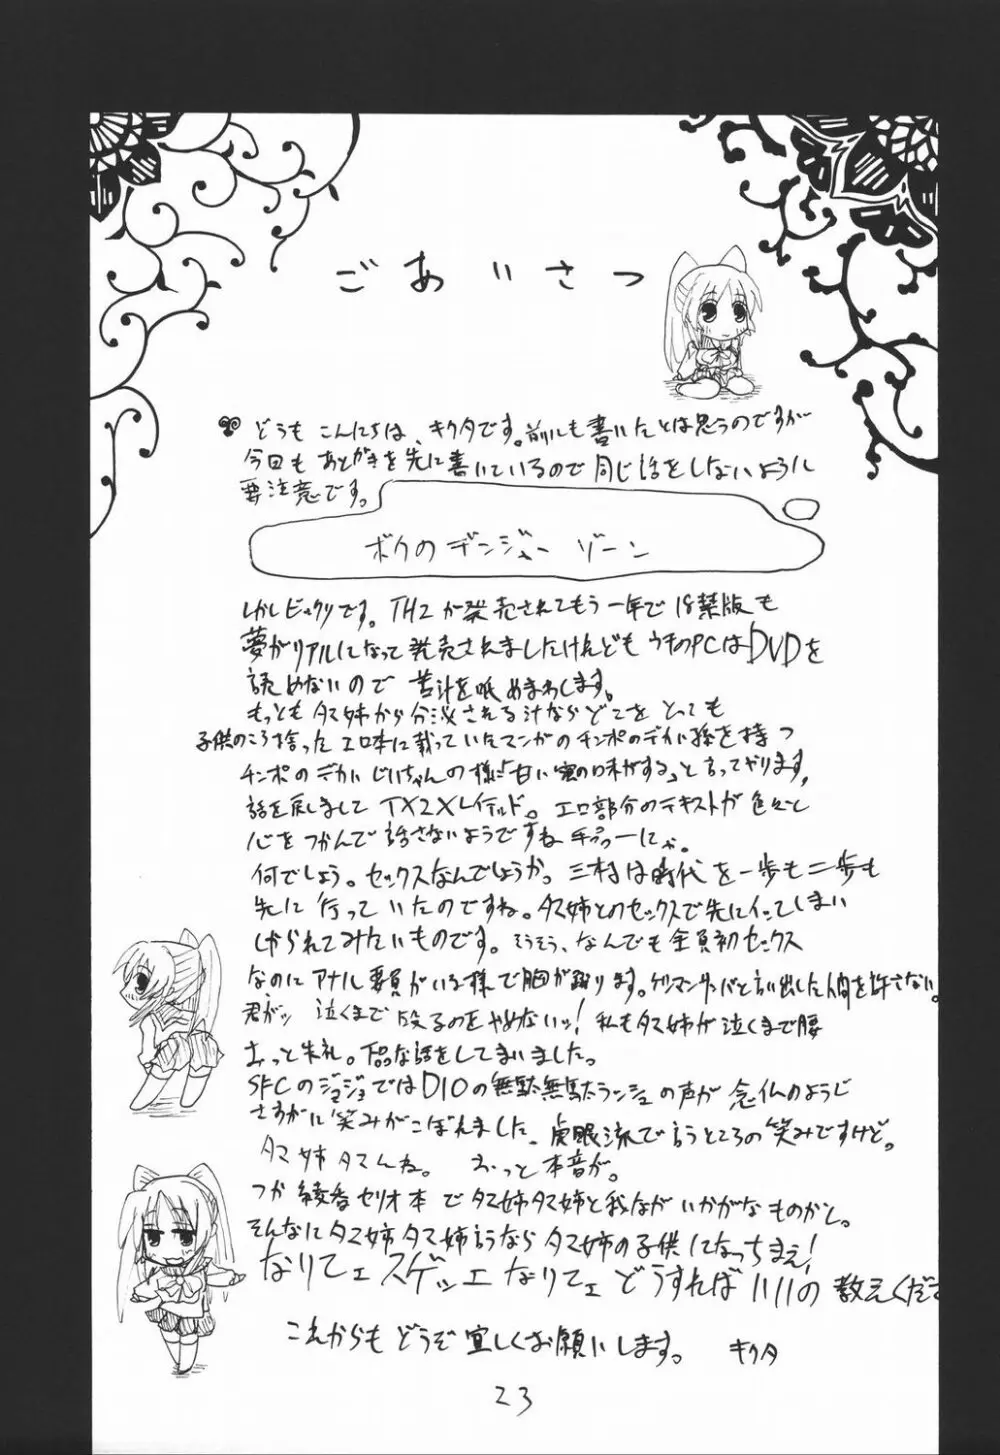 ごあいさつ
どうも こんにちは、キクタです。前にも書いたとは思うのですが
今回も あとがきを先に書いているので同じ話をしないように
要注意です。
ボクのデンジャー ゾーン
しかしビックリです。TH2が発売されてもう一年で18禁版も
夢がリアルになって発売されましたけれども うちのPCはDVDを
読めないので 苦汁を舐めまわします。
もっとも タマ姉から分泌される汁ならどこをとっても
子供のころ拾ったエロ本に載っていたマンガのチンポのデカい孫を持つ
チンポのデカいじいちゃんの様に「甘い蜜の味がする」と言ってやります。
話を戻しまして TX2Xレイテルド。エロ部分のテキストが色々と
心をつかんで話さないようですね
何でしょう。セックスなんでしょうか。三村は時代を一歩も二歩も
先に行っていたのですね。タマ姉とのセックスで先にイッてしまい
しかられてみたいものです。そうそう、なんでも全員初セックス
なのにアナル要員がいる様で胸が踊ります。ゲリマンサンバと言い出した人間を許さない。
君がッ 泣くまで殴るのをやめないッ! 私もタマ姉が泣くまで腰
おっと失礼。下品な話をしてしまいました。
SFCのジョジョではDIOの無駄無駄ラッシュの声が念仏のようじ
さすがに笑みがこぼれました。虎眼流で言うところの笑みですけど。
タマ姉タマんね。 おっと本音が。
つか綾香セリオ本でタマ姉タマ姉と我ながらいかがなものかと。
そんなにタマ姉タマ姉言うなら タマ姉の子供になっちまえ!
なりてェ スゲッェ なりてェ どうすればいいの 教えくださ
これからもどうぞ宜しくお願いします。 キクタ
23